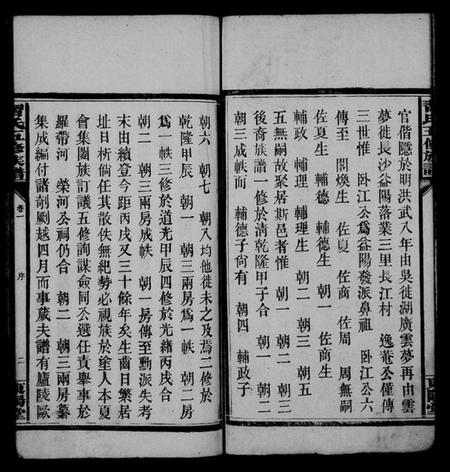 官偕隱於明洪武八年由吳徙湖廣雲夢再由雲
夢徙長沙益陽落業三里長江村 逸菴公僅傳
三世惟 卧江公為益陽發派鼻祖 卧江公六
傳至 閣煥生 佐夏 佐商 佐周 周無嗣
佐夏生 輔德 輔德生 朝一 佐商生
輔政 輔理 輔理生 朝二 朝三 朝五
五無嗣故聚居斯邑者惟 朝一 朝二 朝三
後裔族譜一修於清乾隆甲子合 朝一 朝二
朝三成帙而 輔德子尚有 朝四 輔政子
曾氏五修族譜
卷一 序
二
朝六 朝七 朝八均他徙未之及焉二修於
乾隆甲辰 朝一 朝三兩房為一帙 朝二房
為一帙三修於道光甲辰四修於光緒丙戌合
朝二 朝三兩房成帙 朝一房傳至勳派失考
末由續登今距丙戌又三十餘年矣生齒日繁居
址日析倘任其散佚無絕勢必視族於塗人本夏
會集闔族訂議五修詢謀僉同公選任責舉事於
羅帶河 榮河公祠仍合 朝二 朝三兩房纂
集成編付諸剞劂越四月而事蕆夫譜有廬陵歐